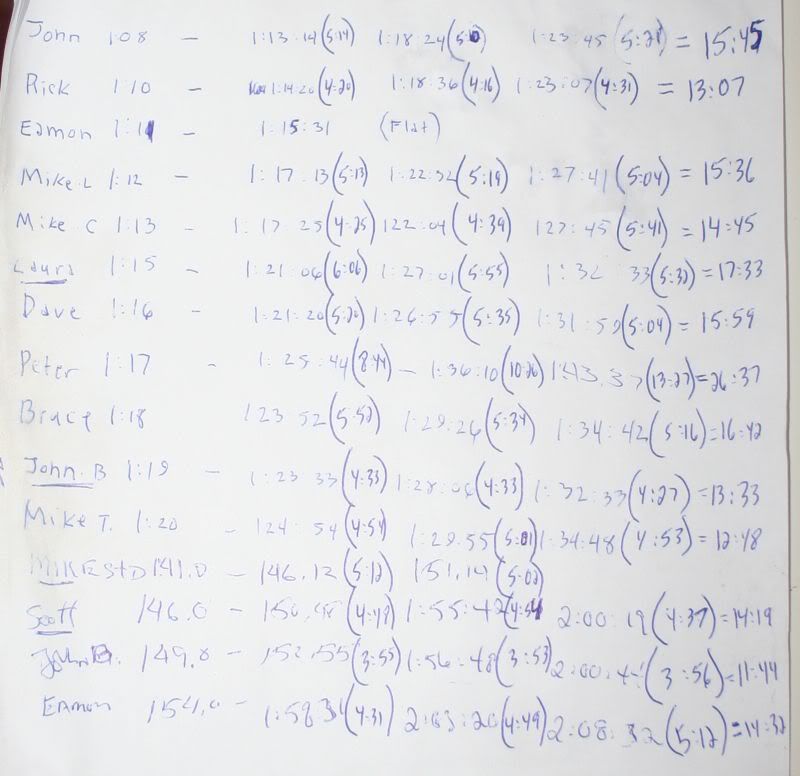 John 1:08 - 1:13:14 (5:14) 1:18:24 (5:10) 1:23:45 (5:21) = 15:45
Rick 1:10 - 1:14:20 (4:20) 1:18:36 (4:16) 1:23:07 (4:31) = 13:07
Eamon 1:11 - 1:15:31 (Flat)
Mike L 1:12 - 1:17:13 (5:13) 1:22:32 (5:19) 1:27:41 (5:04) = 15:36
Mike C 1:13 - 1:17 25 (4:25) 122:04 (4:39) 127:45 (5:41) = 14:45
Laura 1:15 - 1:21:06 (6:06) 1:27:01 (5:55) 1:32 33 (5:32) = 17:33
Dave 1:16 - 1:21:20 (5:20) 1:26:55 (5:35) 1:31:59 (5:04) = 15:59
Peter 1:17 - 1:25:44 (8:44) - 1:36:10 (10:26) 1:43.37 (13:27) = 26:37
Bruce 1:18 123 52 (5:52) 1:29:26 (5:34) 1:34:42 (5:16) = 16:42
John. B 1:19 - 1:23 33 (4:33) 1:28:06 (4:33) 1:32:33 (4:27) = 13:33
Mike T. 1:20 - 124:54 (4:54) 1:29.55 (5:01) 1:34:48 (4:53) = 12:48
MIKE STD 141.0 - 146.12 (5:12) 151.14 (5:02)
Scott 146.0 - 150.48 (4:48) 1:55:42 (4:54 2:00:19 (4:37) = 14:19
John B. 149.0 - 152.55 (3:55) 1:56:48 (3:53) 2:00:44 (3:56) = 11:44
Eamon 154.0 - 1:58 31 (4:31) 2:03:20 (4:49) 2:08:32 (5:12) = 14:32